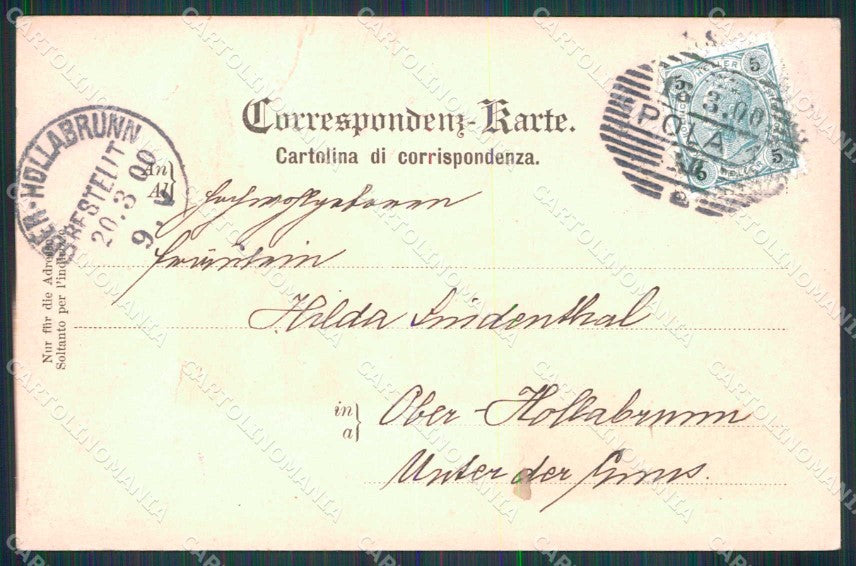 Correspondenz-Karte.
Cartolina di corrispondenza.
An
All
Hochwohlgeboren
Fräulein
Hilda Lindenthal
in
a
Ober-Hollabrunn
Unter der Enns.
Nur für die Adresse
Soltanto per l'indirizzo
OBER-HOLLABRUNN
BESTELLT
20.3 00
9.V
HELLER
5
5
5
3.00
POLA
CARTOLINOMANIA